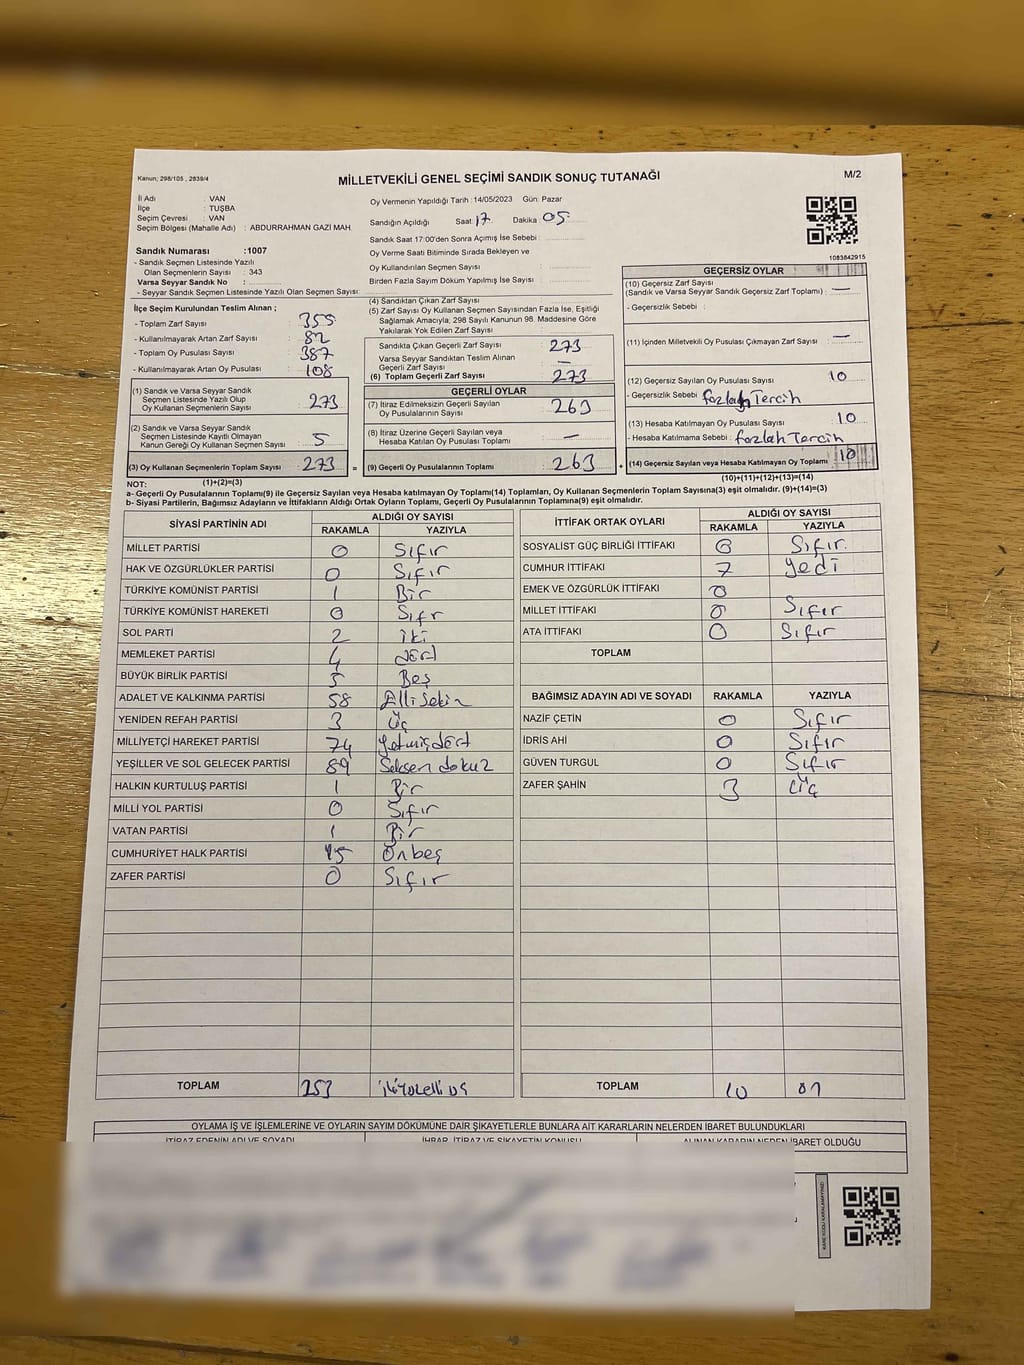 Kanun; 298/105 , 2839/4
MİLLETVEKİLİ GENEL SEÇİMİ SANDIK SONUÇ TUTANAĞI
M/2
İl Adı : VAN
İlçe : TUŞBA
Seçim Çevresi : VAN
Seçim Bölgesi (Mahalle Adı) : ABDURRAHMAN GAZİ MAH.
Sandık Numarası :1007
- Sandık Seçmen Listesinde Yazılı
Olan Seçmenlerin Sayısı : 343
Varsa Seyyar Sandık No :
- Seyyar Sandık Seçmen Listesinde Yazılı Olan Seçmen Sayısı:
Oy Vermenin Yapıldığı Tarih :14/05/2023 Gün: Pazar
Sandığın Açıldığı Saat: 17 Dakika : 05
Sandık Saat 17:00'den Sonra Açımış İse Sebebi :
Oy Verme Saati Bitiminde Sırada Bekleyen ve
Oy Kullandırılan Seçmen Sayısı :
Birden Fazla Sayım Döküm Yapılmış İse Sayısı :
1083842915
İlçe Seçim Kurulundan Teslim Alınan ;
- Toplam Zarf Sayısı : 355
- Kullanılmayarak Artan Zarf Sayısı : 82
- Toplam Oy Pusulası Sayısı : 387
- Kullanılmayarak Artan Oy Pusulası : 108
(1) Sandık ve Varsa Seyyar Sandık
Seçmen Listesinde Yazılı Olup
Oy Kullanan Seçmenlerin Sayısı : 273
(2) Sandık ve Varsa Seyyar Sandık
Seçmen Listesinde Kayıtlı Olmayan
Kanun Gereği Oy Kullanan Seçmen Sayısı : 5
(3) Oy Kullanan Seçmenlerin Toplam Sayısı : 273 =
(4) Sandıktan Çıkan Zarf Sayısı :
(5) Zarf Sayısı Oy Kullanan Seçmen Sayısından Fazla İse, Eşitliği
Sağlamak Amacıyla; 298 Sayılı Kanunun 98. Maddesine Göre
Yakılarak Yok Edilen Zarf Sayısı :
Sandıkta Çıkan Geçerli Zarf Sayısı : 273
Varsa Seyyar Sandıktan Teslim Alınan
Geçerli Zarf Sayısı : —
(6) Toplam Geçerli Zarf Sayısı : 273
GEÇERLİ OYLAR
(7) İtiraz Edilmeksizin Geçerli Sayılan
Oy Pusulalarının Sayısı : 263
(8) İtiraz Üzerine Geçerli Sayılan veya
Hesaba Katılan Oy Pusulası Toplamı : —
(9) Geçerli Oy Pusulalarının Toplamı : 263 +
GEÇERSİZ OYLAR
(10) Geçersiz Zarf Sayısı
(Sandık ve Varsa Seyyar Sandık Geçersiz Zarf Toplamı) : —
- Geçersizlik Sebebi :
(11) İçinden Milletvekili Oy Pusulası Çıkmayan Zarf Sayısı: —
(12) Geçersiz Sayılan Oy Pusulası Sayısı : 10
- Geçersizlik Sebebi : Tercih
(13) Hesaba Katılmayan Oy Pusulası Sayısı : 10
- Hesaba Katılmama Sebebi : fazlah Tercih
(14) Geçersiz Sayılan veya Hesaba Katılmayan Oy Toplamı : 10
NOT: (1)+(2)=(3)
(10)+(11)+(12)+(13)=(14)
a- Geçerli Oy Pusulalarının Toplamı(9) ile Geçersiz Sayılan veya Hesaba katılmayan Oy Toplamı(14) Toplamları, Oy Kullanan Seçmenlerin Toplam Sayısına(3) eşit olmalıdır. (9)+(14)=(3)
b- Siyasi Partilerin, Bağımsız Adayların ve İttifakların Aldığı Ortak Oyların Toplamı, Geçerli Oy Pusulalarının Toplamına(9) eşit olmalıdır.
SİYASİ PARTİNİN ADI ALDIĞI OY SAYISI
RAKAMLA YAZIYLA
MİLLET PARTİSİ 0 Sıfır
HAK VE ÖZGÜRLÜKLER PARTİSİ 0 Sıfır
TÜRKİYE KOMÜNİST PARTİSİ 1 Bir
TÜRKİYE KOMÜNİST HAREKETİ 0 Sıfr
SOL PARTİ 2 iki
MEMLEKET PARTİSİ 4 dört
BÜYÜK BİRLİK PARTİSİ 5 Beş
ADALET VE KALKINMA PARTİSİ 58 Elli Sekiz
YENİDEN REFAH PARTİSİ 3 Üç
MİLLİYETÇİ HAREKET PARTİSİ 74 Yetmiş dört
YEŞİLLER VE SOL GELECEK PARTİSİ 89 Seksen dokuz
HALKIN KURTULUŞ PARTİSİ 1 Bir
MİLLİ YOL PARTİSİ 0 Sıfır
VATAN PARTİSİ 1 Bir
CUMHURİYET HALK PARTİSİ 15 Onbeş
ZAFER PARTİSİ 0 Sıfır
TOPLAM 253
İTTİFAK ORTAK OYLARI ALDIĞI OY SAYISI
RAKAMLA YAZIYLA
SOSYALİST GÜÇ BİRLİĞİ İTTİFAKI 0 Sıfır.
CUMHUR İTTİFAKI 7 Yedi
EMEK VE ÖZGÜRLÜK İTTİFAKI 0
MİLLET İTTİFAKI 0 Sıfır
ATA İTTİFAKI 0 Sıfır
TOPLAM
BAĞIMSIZ ADAYIN ADI VE SOYADI RAKAMLA YAZIYLA
NAZİF ÇETİN 0 Sıfır
İDRİS AHİ 0 Sıfır
GÜVEN TURGUL 0 Sıfır
ZAFER ŞAHİN 3 Üç
TOPLAM 10 on
OYLAMA İŞ VE İŞLEMLERİNE VE OYLARIN SAYIM DÖKÜMÜNE DAİR ŞİKAYETLERLE BUNLARA AİT KARARLARIN NELERDEN İBARET BULUNDUKLARI
İTİRAZ EDENİN ADI VE SOYADI İHBAR, İTİRAZ VE ŞİKAYETİN KONUSU ALINAN KARARIN NEDEN İBARET OLDUĞU
KARE KODU KARALAMAYINIZ!